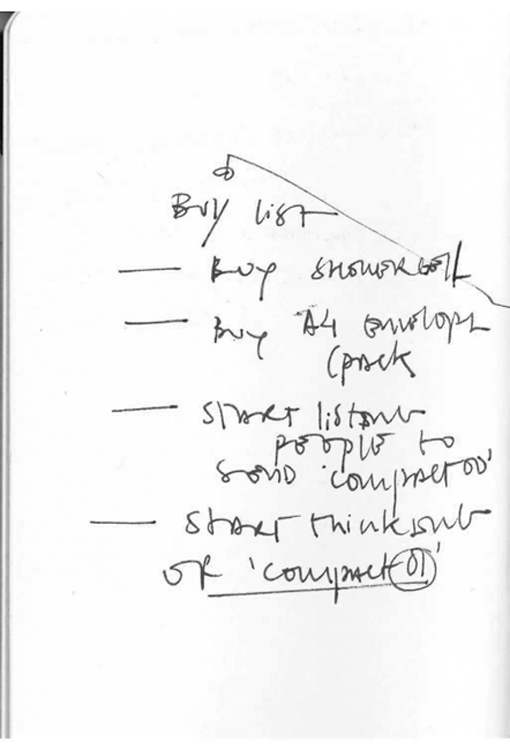 Buy list
— Buy SHOWER GELL
— Buy A4 envelope
(pack
— START listing
people to
SEND 'compact 00'
— START thinking
OF 'compact 01'